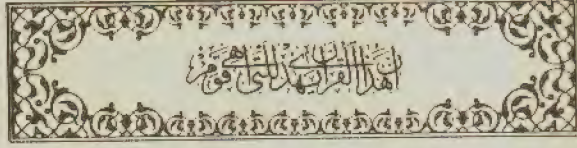 إن هذا القرآن يهدي للتي هي أقوم